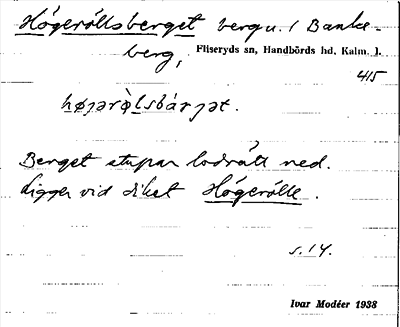 Högeröllsbergret bergu. i Banke-
berg, Fliseryds sn, Handbörds hd, Kalm. l.
415
Berget stupar lodrätt ned.
Ligger vid diket Högerölle.
s. 14.
Ivar Modéer 1938